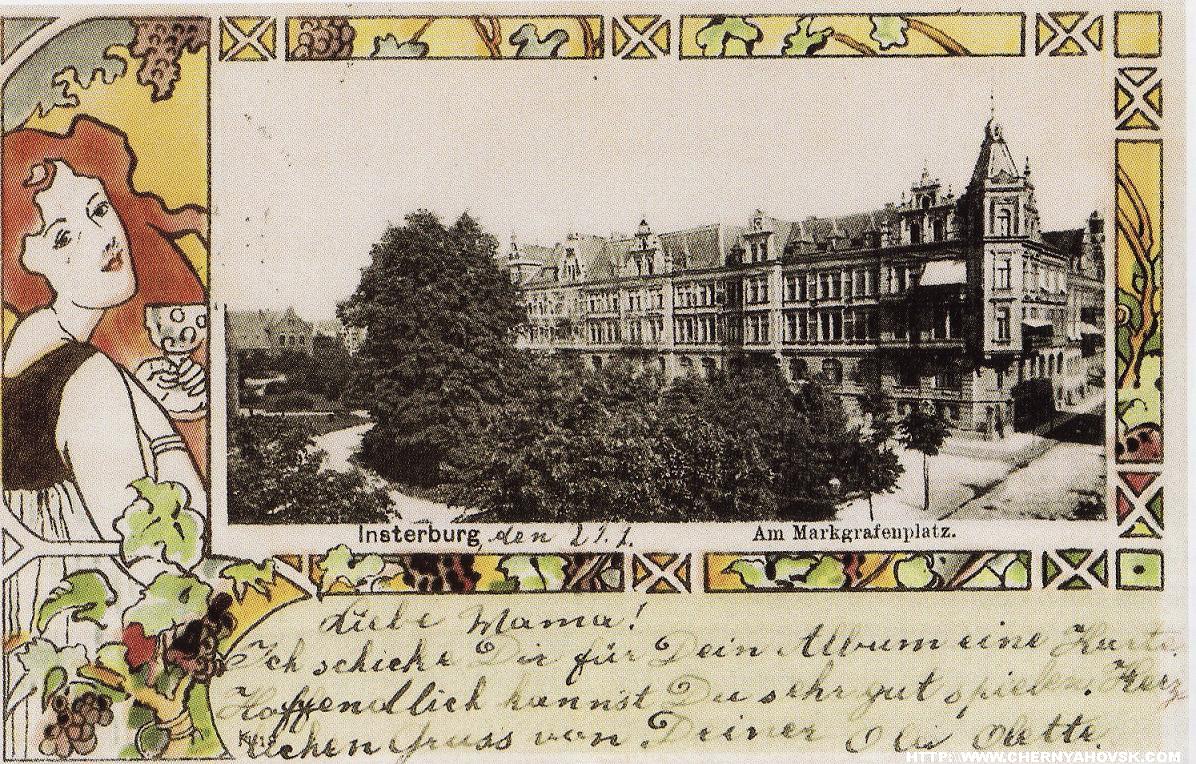 Insterburg, den 27.1.
Am Markgrafenplatz.
Liebe Mama!
Ich schicke Dir für Dein Album eine Karte.
Hoffendlich kannst Du sehr gut spielen. Herz
lichen Gruss von Deiner
HTTP://WWW.CHERNYAHOVSK.COM